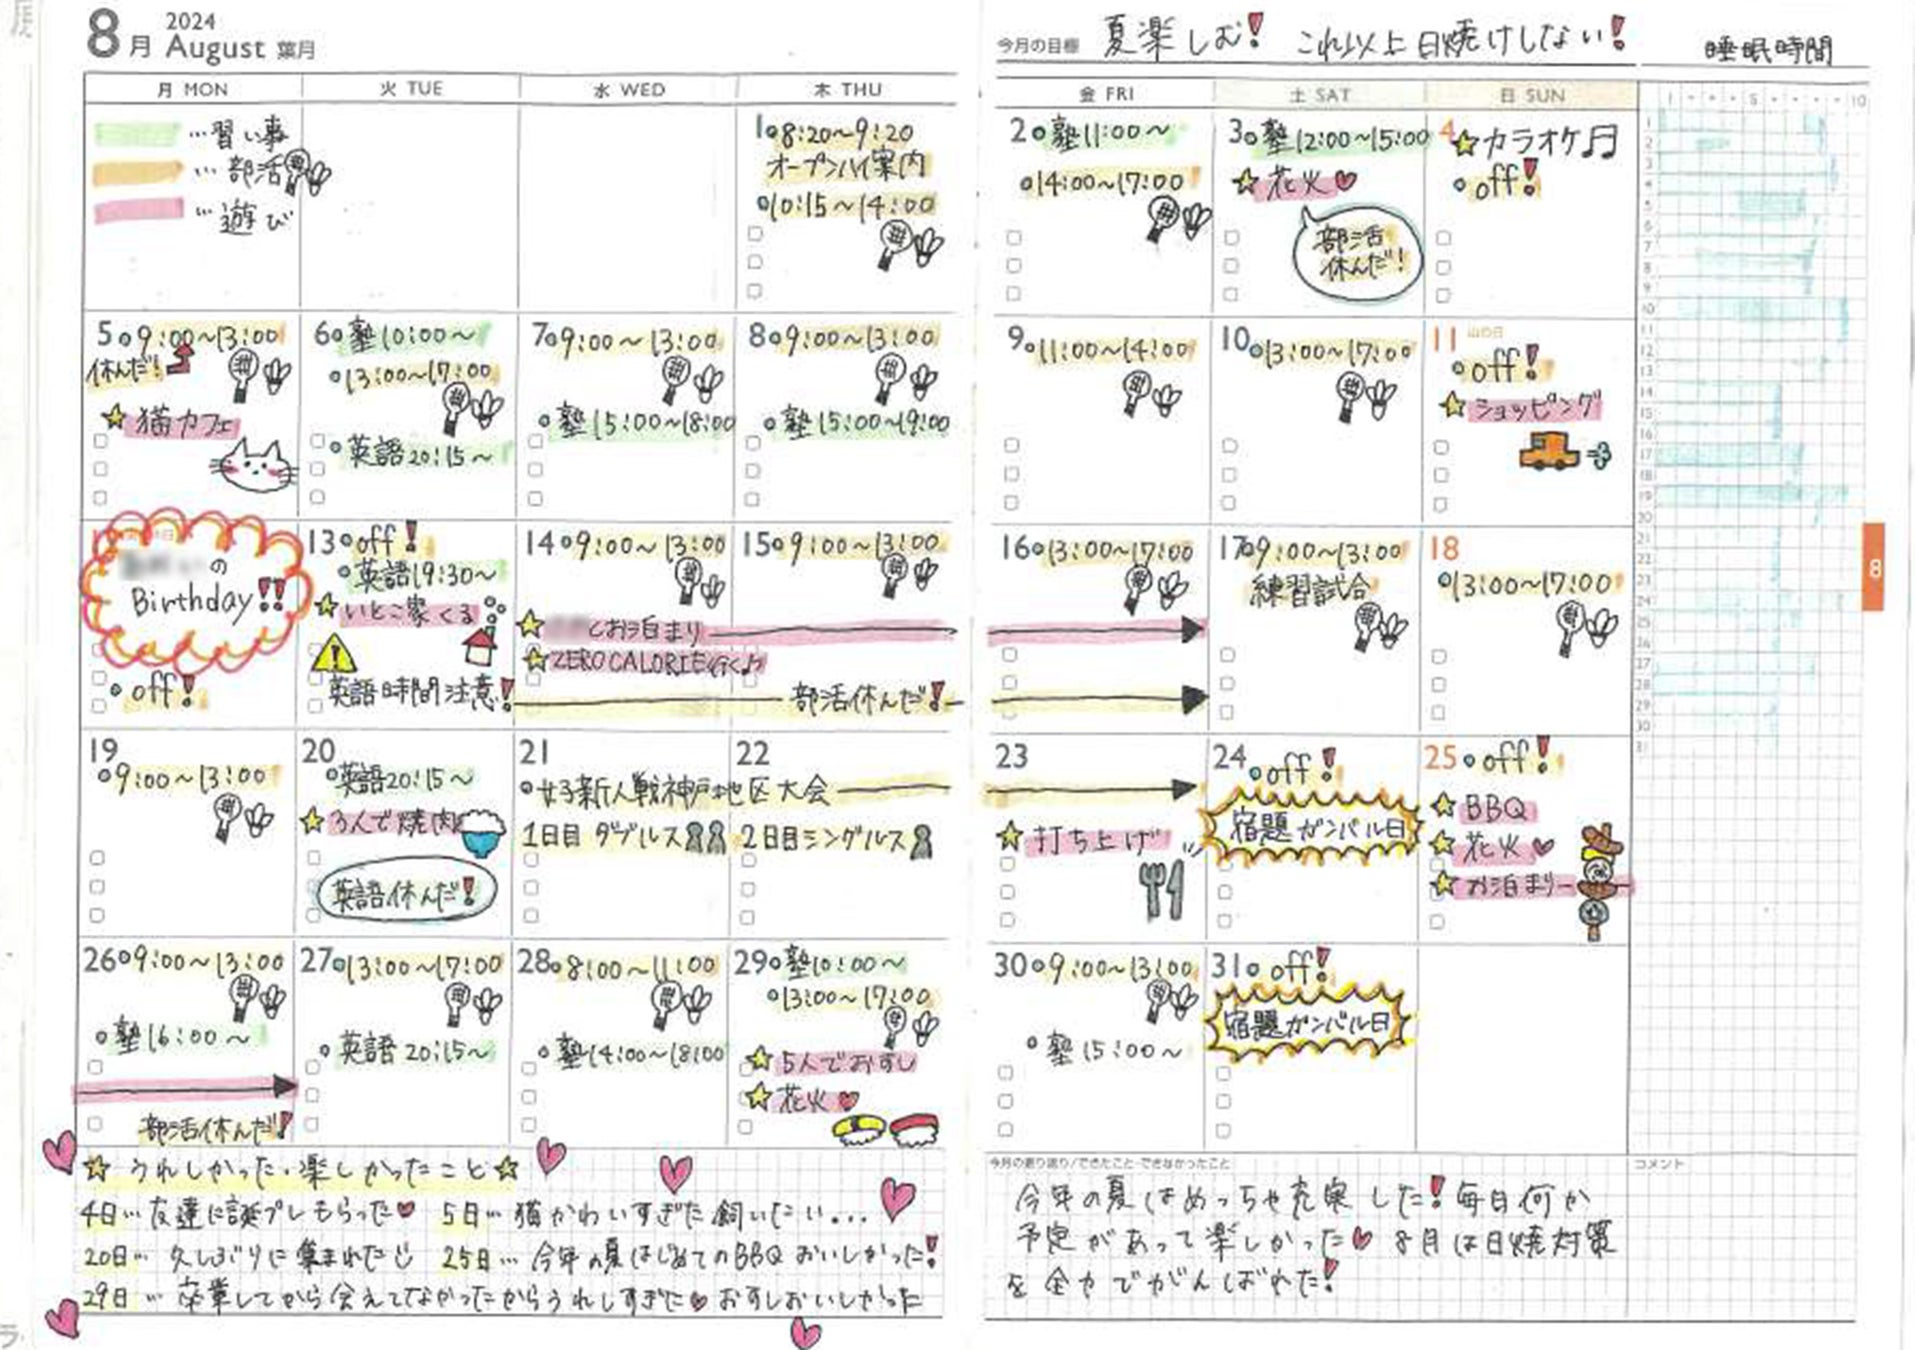 8月 2024 August 葉月
今月の目標 夏楽しむ! これ以上日焼けしない!
睡眠時間
月 MON
火 TUE
水 WED
木 THU
金 FRI
土 SAT
日 SUN
…習い事
…部活
…遊び
1 8:20~9:20
オープンハイ案内
10:15~14:00
2 塾11:00~
14:00~17:00
3 塾12:00~15:00
花火
部活
休んだ!
4 カラオケ
off!
5 9:00~13:00
休んだ!
猫カフェ
6 塾10:00~
13:00~17:00
英語20:15~
7 9:00~13:00
塾15:00~18:00
8 9:00~13:00
塾15:00~19:00
9 11:00~14:00
10 13:00~17:00
11 山の日
off!
ショッピング
の
Birthday!!
off!
13 off!
英語19:30~
いとこ家くる
英語時間注意!
14 9:00~13:00
とお泊まり
ZERO CALORIE行く♪
15 9:00~13:00
部活休んだ!
16 13:00~17:00
17 9:00~13:00
練習試合
18
13:00~17:00
19
9:00~13:00
20
英語20:15~
3人で焼肉
英語休んだ!
21
女子新人戦神戸地区大会
1日目 ダブルス
22
2日目シングルス
23
打ち上げ
24 off!
宿題ガンバル日
25 off!
BBQ
花火
お泊まり
26 9:00~13:00
塾16:00~
部活休んだ!
27 13:00~17:00
英語20:15~
28 8:00~11:00
塾14:00~18:00
29 塾10:00~
13:00~17:00
5人でおすし
花火
30 9:00~13:00
塾15:00~
31 off!
宿題ガンバル日
8
うれしかった・楽しかったこと
4日… 友達に誕プレもらった 5日… 猫かわいすぎた飼いたい...
20日… 久しぶりに集まれた 25日… 今年の夏はじめてのBBQおいしかった!
29日… 卒業してから会えてなかったからうれしすぎた おすしおいしかった
今月の振り返り/できたこと・できなかったこと
今年の夏はめっちゃ充実した! 毎日何か
予定があって楽しかった 8月は日焼対策
を全力でがんばれた!
コメント